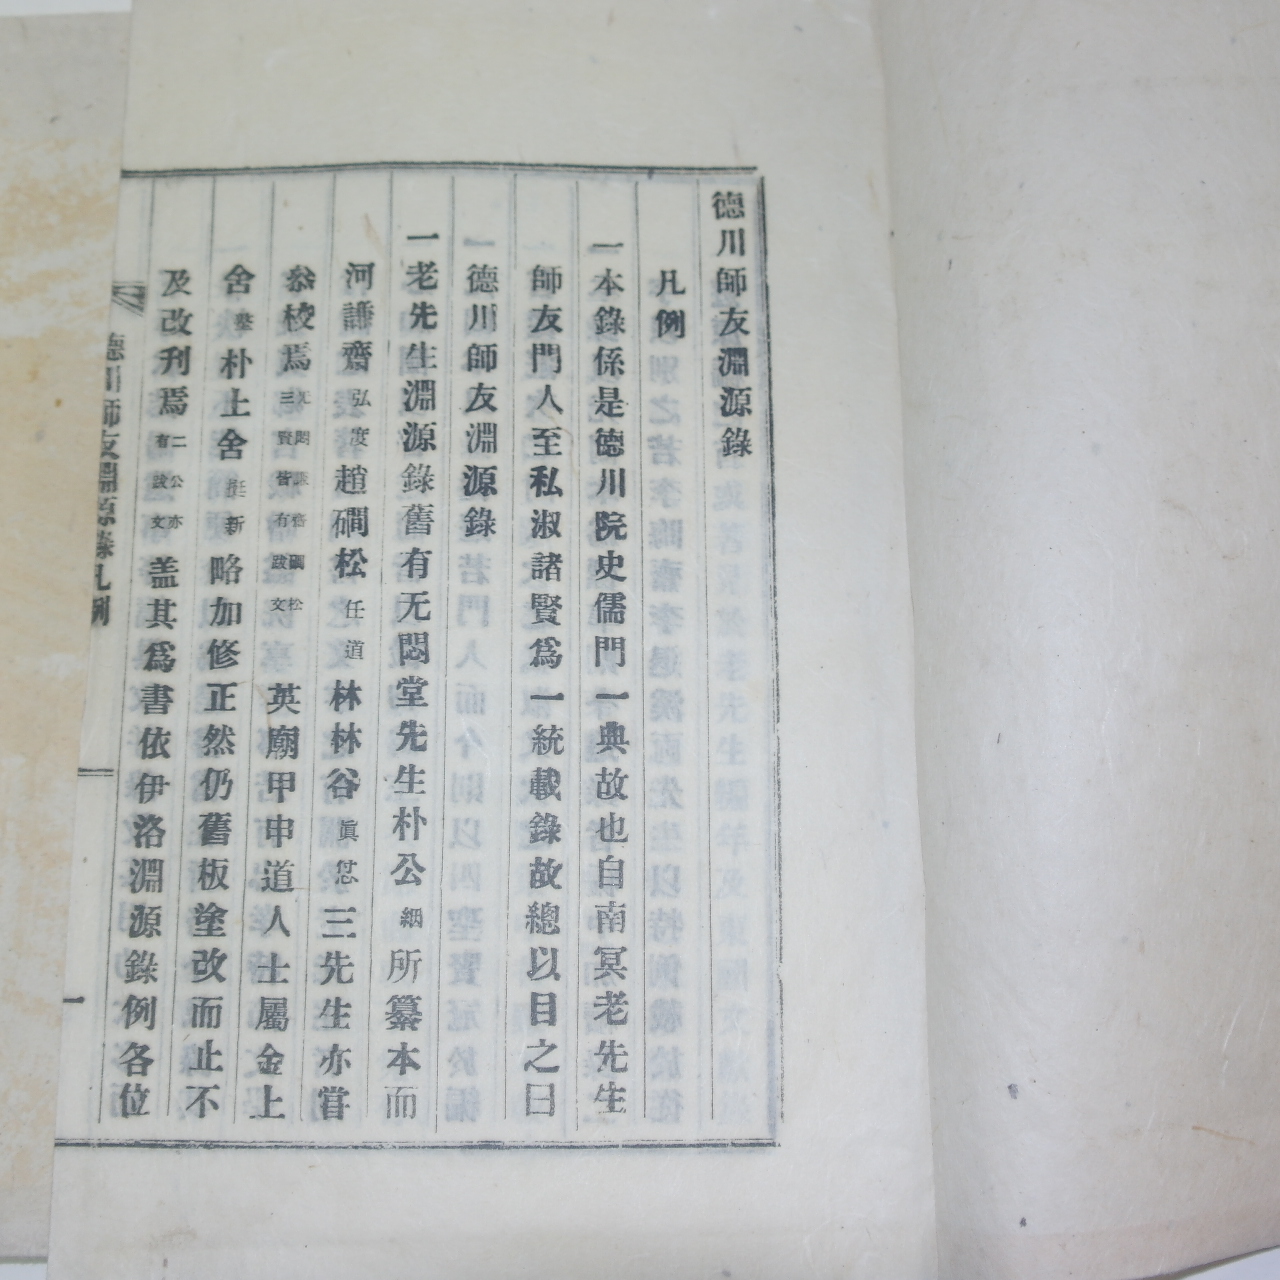 德川師友淵源錄
凡例
一本錄係是德川院史儒門一典故也自南冥老先生
師友門人至私淑諸賢爲一統載錄故總以目之曰
德川師友淵源錄
一老先生淵源錄舊有无悶堂先生朴公絪所纂本而
河謙齋弘度趙磵松任道林林谷眞怤三先生亦嘗
叅校焉无悶謙齋磵松三賢皆有跋文英廟甲申道人士屬金上
舍墪朴上舍挺新略加修正然仍舊板塗改而止不
及改刋焉二公亦有跋文盖其爲書依伊洛淵源錄例各位
德川師友淵源錄凡例
一